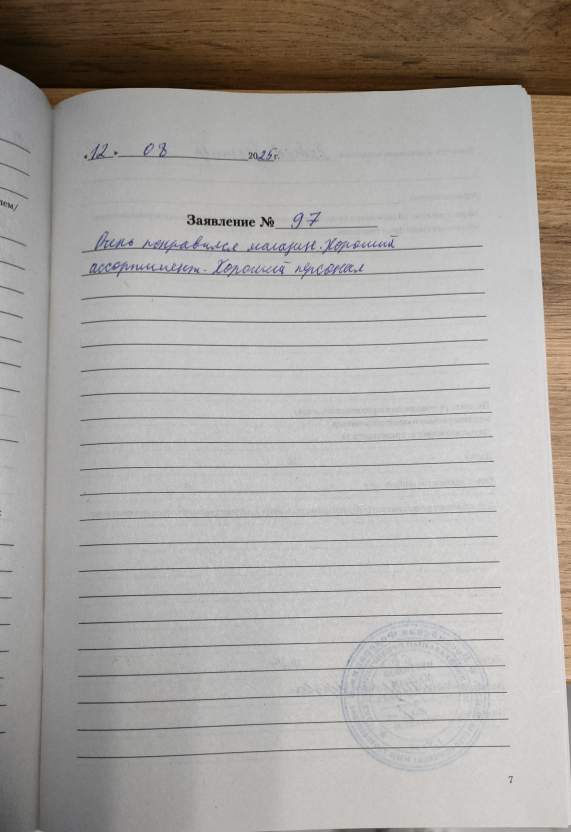 лем/
«12» 08 2025 г.
Заявление № 97
Очень понравился магазин. Хороший
ассортимент. Хороший персонал
7